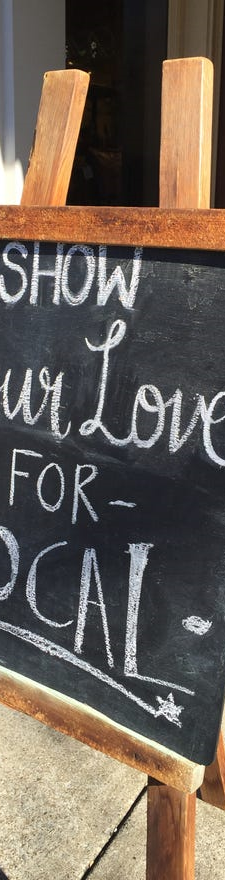 SHOW
ur Love
FOR-
OCAL-